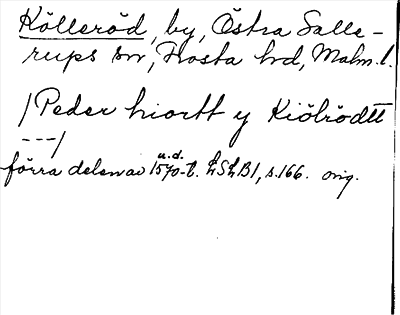 Kölleröd, by, Östra Salle-
rups sn, Frosta hd, Malm. l.
/Peder hiortt y Kiölrödtt
---/
u.d.
förra delen av 1570-t. LSLB1, s.166. orig.